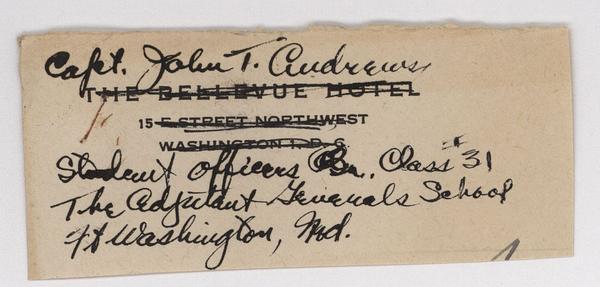 Capt. John T. Andrews
THE BELLEVUE HOTEL
15 E STREET NORTHWEST
WASHINGTON 1, D. C.
Student Officers Bn., Class #31
The Adjutant Generals School
Ft Washington, Md.